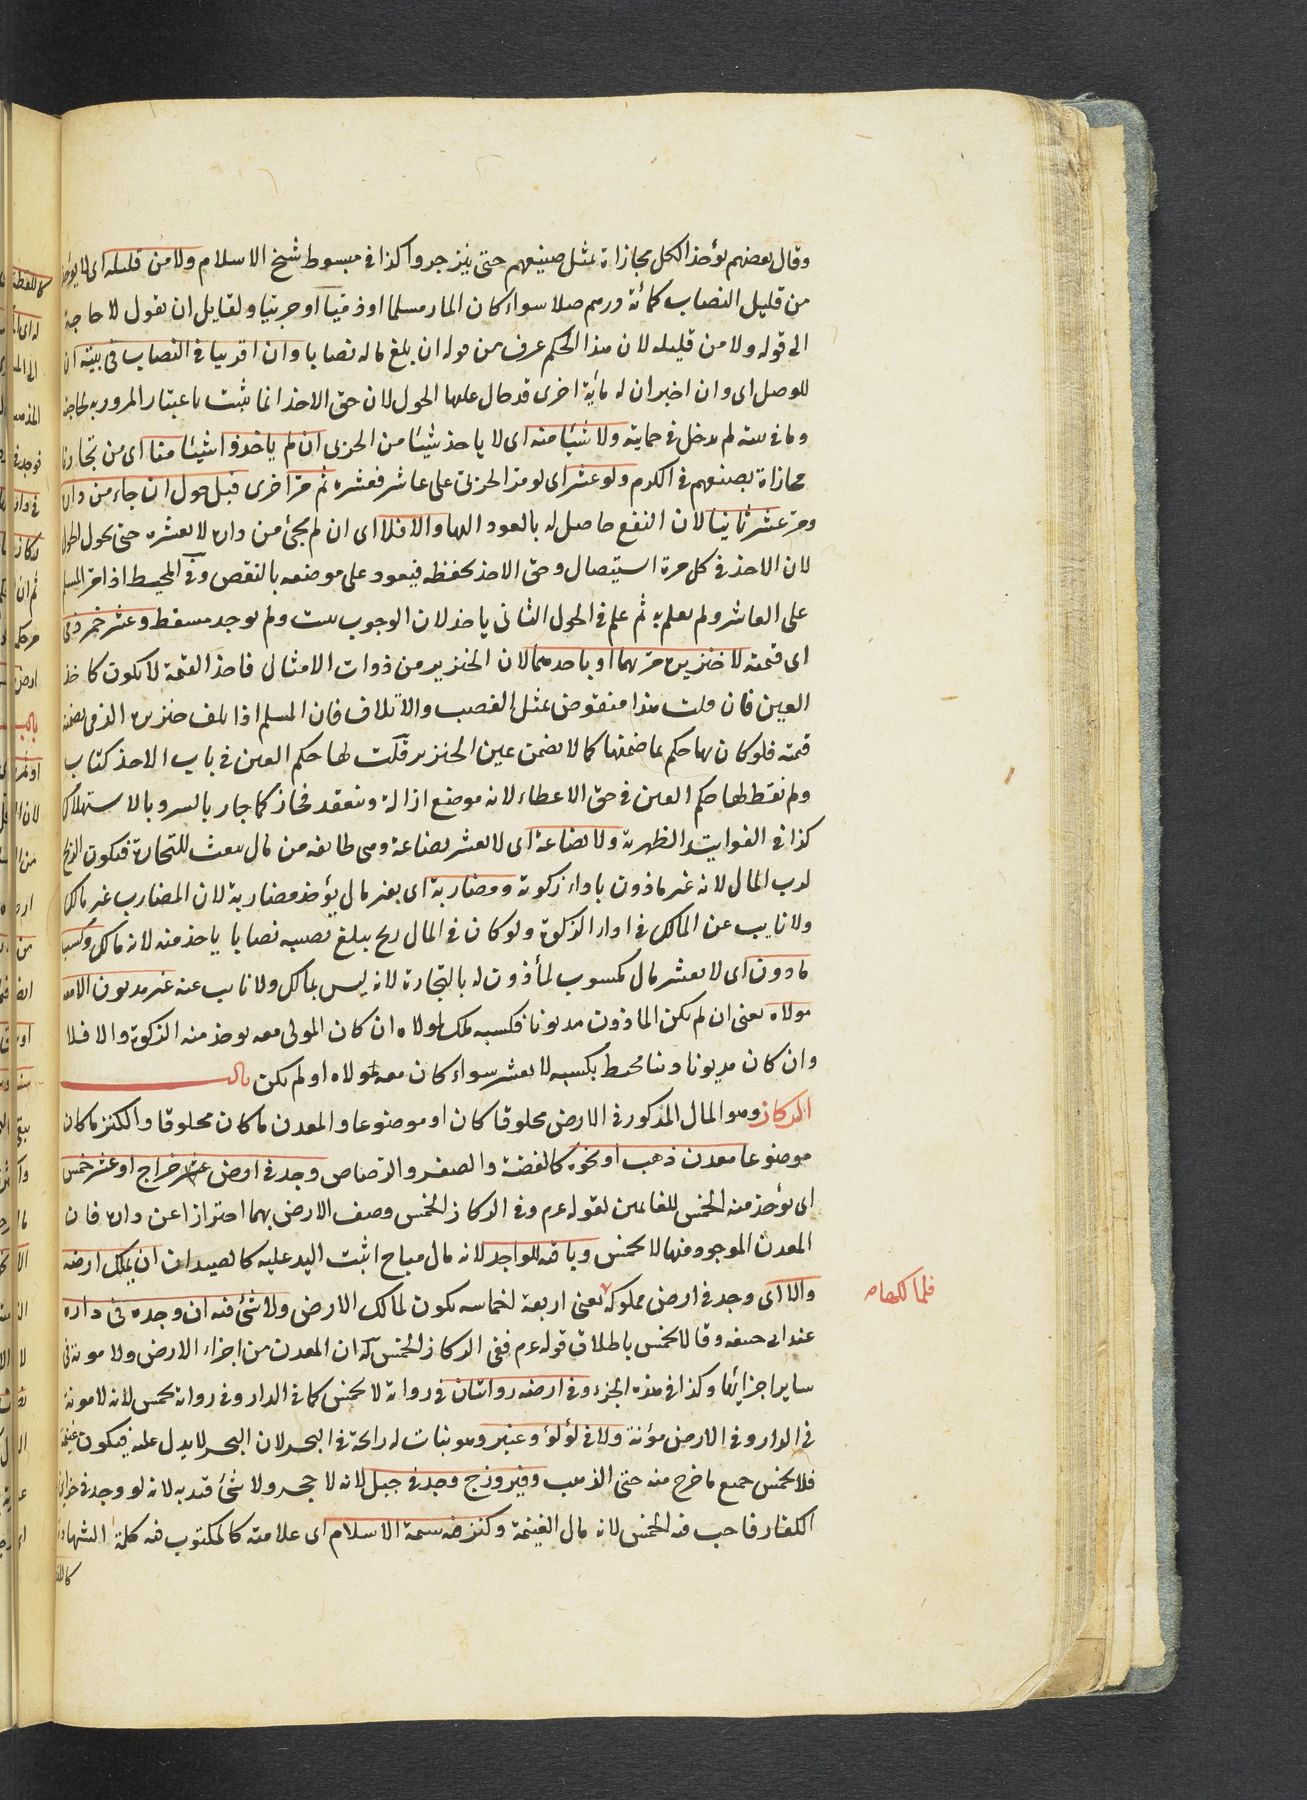 وقال بعضهم يؤخذ الكل مجازاة بمثل صنيعهم حتى ينزجروا كذا في مبسوط شيخ الاسلام ولا من قليله اى لا يؤخذ
من قليل النصاب كمائة درهم مثلا سواء كان المار مسلما او ذميا او حربيا ولقايل ان يقول لا حاجة
الى قوله ولا من قليله لان هذا الحكم عرف من قوله ان بلغ ماله نصابا وان اقر بباقي النصاب في بيته ان
للوصل اى وان اخبر ان له مائة اخرى قد حال عليها الحول لان حق الاخذ انما يثبت باعتبار المرور به لحاجة
وما في بيته لم يدخل في حمايته ولا شيئا منه اى لا ياخذ شيئا من الحربى ان لم ياخذوا شيئا منا اى من تجارنا
مجازاة بصنيعهم في الكرم ولو عشر اى لو مر الحربى على عاشر فعشره ثم مر اخرى قبل حول ان جاء من داره
ومر عشر ثانيا لان النفع حاصل له بالعود اليها والا فلا اى ان لم يجئ من داره لا يعشره حتى يحول الحول
لان الاخذ في كل مرة استيصال وحق الاخذ لحفظه فيعود على موضعه بالنقص وفى المحيط اذا مر المسلم
على العاشر ولم يعلم به ثم علم في الحول الثانى ياخذ لان الوجوب يثبت ولم يوجد مسقط وعشر خمر ذمى
اى قيمته لا خنزيره مر بهما او باحدهما لان الخنزير من ذوات الامثال فاخذ القيمة لا يكون كاخذ
العين فان قلت هذا منقوض بمثل الغصب والاتلاف فان المسلم اذا تلف خنزير الذمى يضمن
قيمته فلو كان لها حكم لما ضمنها كما لا يضمن عين الخنزير قلت لها حكم العين في باب الاخذ كتاب
ولم يعط لها حكم العين في حق الاعطاء لانه موضع ازالة وتبعيد فجاز كما جاز بالسر وبالاستهلاك
كذا في الفوايد الظهرية ولا بضاعة اى لا يعشر بضاعة وهى طايفة من مال يبعث للتجارة فيكون الربح
لرب المال لانه غير ماذون باداء زكوته ومضاربة اى بغير مال يؤخذ مضاربة لان المضارب غير مالك
ولا نايب عن المالك في اداء الزكوة ولو كان في المال ربح يبلغ نصيبه نصابا ياخذ منه لانه مالك وكسب
ماذون اى لا يعشر مال مكسوب لمأذون له بالتجارة لانه ليس بمالك ولا نايب عنه غير مديون الا معه
مولاه يعنى ان لم يكن الماذون مديونا فكسبه ملك لمولاه ان كان المولى معه يؤخذ منه الزكوة والا فلا
وان كان مديونا دينا محيط بكسبه لا يعشر سواء كان معه مولاه او لم يكن باب
الركاز وهو المال المذكور في الارض مخلوقا كان او موضوعا والمعدن ما كان مخلوقا والكنز ما كان
موضوعا معدن ذهب او نحوه كالفضة والصفر والرصاص وجد في ارض خراج او عشر خمس
اى يؤخذ منه الخمس للغانمين لقوله عم وفى الركاز الخمس وصف الارض بهما احترازا عن داره فان
المعدن الموجود فيها لا يخمس وباقيه للواجد لانه مال مباح اثبت اليد عليه كالصيد ان لم يملك ارضه
والا اى وجد في ارض مملوكة يعنى اربعة اخماسه يكون لمالك الارض ولا شئ فيه ان وجده في داره
عند ابى حنيفه وقالا يخمس باطلاق قوله عم ففى الركاز الخمس له ان المعدن من اجزاء الارض ولا مونة في
ساير اجزائها وكذا في هذه الجزء وفى ارضه روايتان في رواية لا يخمس كما في الدار وفى رواية يخمس لانه لا مونة
في الدار وفى الارض مؤنة ولا في لؤلؤ وعنبر وهو نبات له رائحة في البحر لان البحر لا يدل عليه فيكون غنيمة
فلا يخمس جميع ما خرج منه حتى الذهب وفيروزج وجد في جبل لانه لا حجر ولا شئ قيد به لانه لو وجد في خزاين
الكفار فاجب فيه الخمس لانه مال الغنيمة وكنز فيه سمة الاسلام اى علامته كالمكتوب فيه كلمة الشهادة